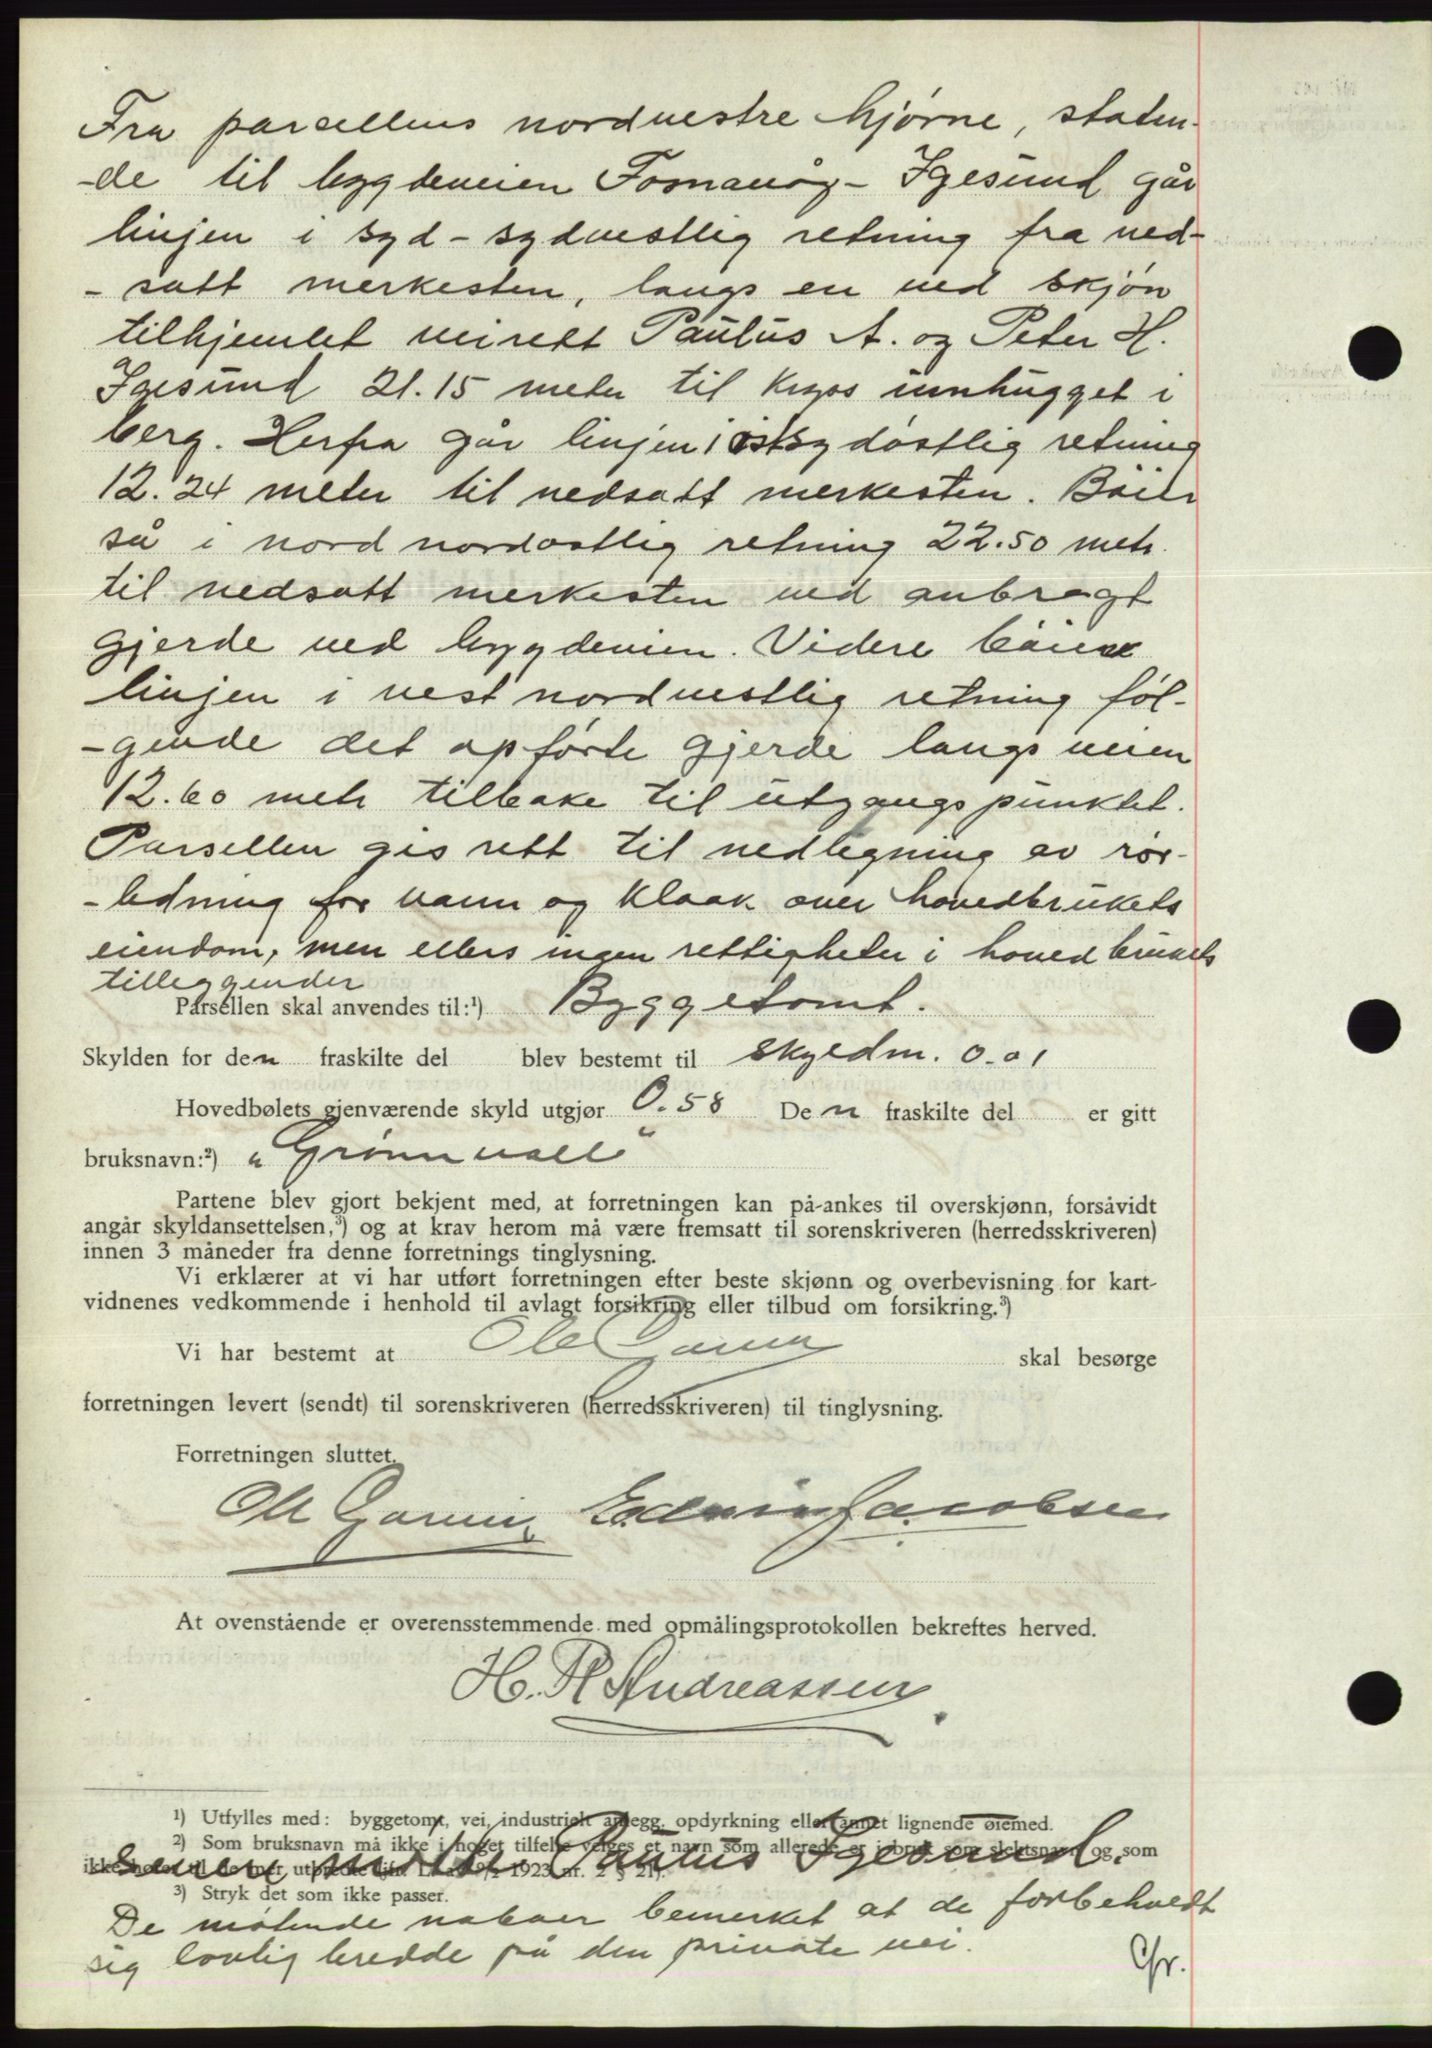 Fra parcellens nordvestre hjørne, støten-
-de til bygdeveien Fosnavåg - Igesund går
linjen i syd-sydvestlig retning fra ned-
- satt merkesten, langs en ved skjøn
tilhjemlet veirett Paulus A. og Peter H.
Igesund 21.15 meter til kryss innhugget i
berg. Herfra går linjen i østsydøstlig retning
12.24 meter til nedsatt merkesten. Bøier
så i nord nordøstlig retning 22.50 metr.
til nedsatt merkesten ved anbragt
gjerde ved bygdeveien. Videre bøier
linjen i vest nordvestlig retning føl-
-gende det opførte gjerde langs veien
12.60 metr tilbake til utgangspunktet.
Parsellen gis rett til nedlegning av rør-
-ledning for vann og kloak over hovedbrukets
eiendom, men ellers ingen rettigheter i hovedbrukets
tilleggender
Parsellen skal anvendes til:¹) Byggetomt.
Skylden for den fraskilte del blev bestemt til skyldm. 0.01
Hovedbølets gjenværende skyld utgjør 0.58 Den fraskilte del er gitt
bruksnavn:²) „Grønnvoll“
Partene blev gjort bekjent med, at forretningen kan på-ankes til overskjønn, forsåvidt
angår skyldansettelsen,³) og at krav herom må være fremsatt til sorenskriveren (herredsskriveren)
innen 3 måneder fra denne forretnings tinglysning.
Vi erklærer at vi har utført forretningen efter beste skjønn og overbevisning for kart-
vidnenes vedkommende i henhold til avlagt forsikring eller tilbud om forsikring.³)
Vi har bestemt at Ole Garnes skal besørge
forretningen levert (sendt) til sorenskriveren (herredsskriveren) til tinglysning.
Forretningen sluttet.
Ole Edwin Jacobsen
At ovenstående er overensstemmende med opmålingsprotokollen bekreftes herved.
H. P. Andreassen
¹) Utfylles med: byggetomt, vei, industrielt anlegg, opdyrkning eller annet lignende øiemed.
²) Som bruksnavn må ikke i noget tilfelle velges et navn som allerede er i bruk som slektsnavn og som
ikke hører til de mer utbredte (jfr. L. av 9/2 1923 nr. 2 § 21).
Paulus Igesund.
³) Stryk det som ikke passer.
De møtende naboer bemerket at de forbeholdt
sig lovlig bredde på den private vei.